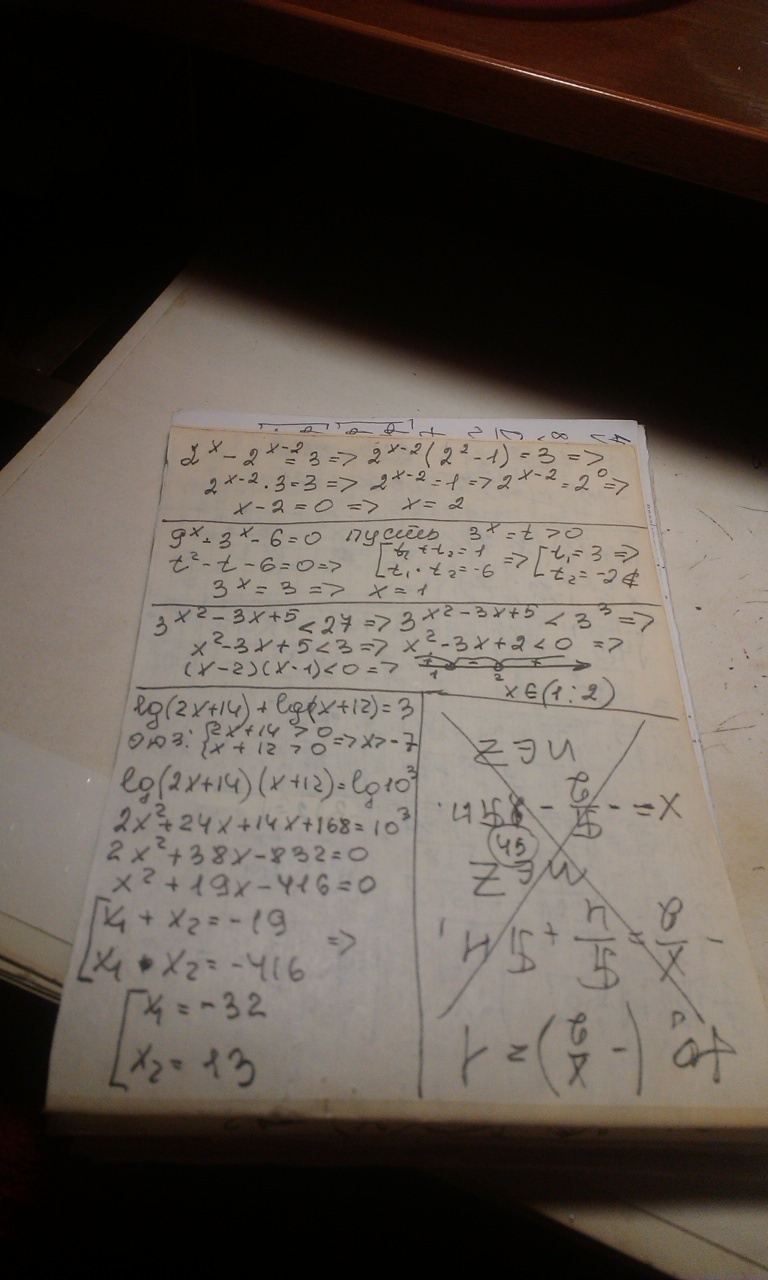 2^x - 2^{x-2} = 3 => 2^{x-2}(2^2 - 1) = 3 =>
2^{x-2} · 3 = 3 => 2^{x-2} = 1 => 2^{x-2} = 2^0 =>
x - 2 = 0 => x = 2
9^x - 3^x - 6 = 0 пусть 3^x = t > 0
t^2 - t - 6 = 0 => [t_1 + t_2 = 1 => [t_1 = 3 =>
t_1 · t_2 = -6 t_2 = -2 ∉
3^x = 3 => x = 1
3^{x^2 - 3x + 5} < 27 => 3^{x^2 - 3x + 5} < 3^3 =>
x^2 - 3x + 5 < 3 => x^2 - 3x + 2 < 0 =>
(x-2)(x-1) < 0 => + 1 - 2 +
x ∈ (1; 2)
lg(2x+14) + lg(x+12) = 3
ОДЗ: {2x + 14 > 0
x + 12 > 0 => x > -7
lg(2x+14)(x+12) = lg10^3
2x^2 + 24x + 14x + 168 = 10^3
2x^2 + 38x - 832 = 0
x^2 + 19x - 416 = 0
[x_1 + x_2 = -19
x_1 · x_2 = -416 =>
[x_1 = -32
x_2 = 13
(- x/2) = 1
n ∈ Z
45
n ∈ Z